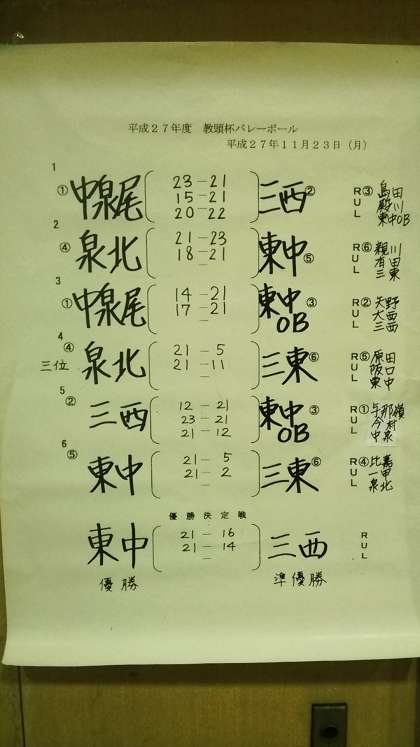 平成27年度 教頭杯バレーボール
平成27年11月23日(月)
1 ① 中泉尾 23-21 三西 ② R ③ 島田
15-21 U 殿川
20-22 L 東中OB
2 ④ 泉北 21-23 東中 ⑤ R ⑥ 親川
18-21 U 有田
- L 三東
3 ① 中泉尾 14-21 東中OB ③ R ② 矢野
17-21 U 大西
- L 三西
4 ④ 三位 泉北 21-5 三東 ⑥ R ⑤ 原田
21-11 U 阪口
- L 東中
5 ② 三西 12-21 東中OB ③ R ① 与那嶺
23-21 U 今村
21-12 L 中泉
6 ⑤ 東中 21-5 三東 ⑥ R ④ 比嘉
21-2 U 一甲
- L 泉北
優勝決定戦
東中 21-16 三西 R
21-14 U
- L
優勝 準優勝